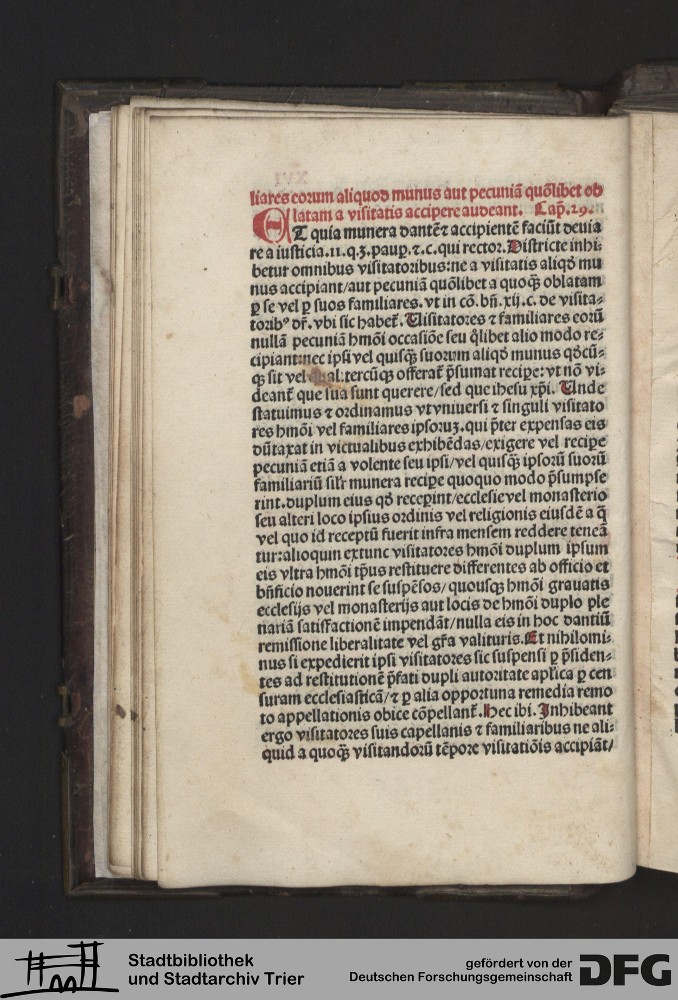 liares eorum aliquod munus aut pecuniā quōlibet ob
latam a visitatis accipere audeant. Cap̄.29.
ET quia munera dantē⁊ accipientē faciūt deuia
re a iusticia.11.q.3.paup̱.⁊.c.qui rector.Districte inhi⸗
betur omnibus visitatoribus:ne a visitatis aliqḋ mu
nus accipiant/aut pecuniā quōlibet a quoqꝫ oblatam
ꝑ se vel ꝑ suos familiares.vt in cō.bn̄.xij.c.de visita⸗
toribꝰ dr̄.vbi sic habet̄.Uisitatores ⁊ familiares eorū
nullā pecuniā hmōi occasiōe seu q̄libet alio modo re⸗
cipiant:nec ipsi vel quisqꝫ suorum aliqḋ munus qḋcū⸗
qꝫ sit vel :tercūqꝫ offerat̄ p̄sumat recipe:vt nō vi⸗
deant̄ que sua sunt querere/sed que ihesu xp̄i. Unde
statuimus ⁊ ordinamus vt vniuersi ⁊ singuli visitato
res hmōi vel familiares ipsoruꝫ.qui p̄ter expensas eis
dūtaxat in victualibus exhibēdas/exigere vel recipe
pecuniā etiā a volente seu ipsi/vel quisqꝫ ipsorū suorū
familiariū silr̄ munera recipe quoquo modo p̄sumpse
rint.duplum eius qḋ recep̱int/ecclesie vel monasterio
seu alteri loco ipsius ordinis vel religionis eiusdē a q̄
vel quo id receptū fuerit infra mensem reddere teneā
tur:alioquin extunc visitatores hmōi duplum ipsum
eis vltra hmōi tp̄us restituere differentes ab officio et
bn̄ficio nouerint se suspēsos/quousqꝫ hmōi grauatis
ecclesijs vel monasterijs aut locis de hmōi duplo ple
nariā satisfactionē impendāt/nulla eis in hoc dantiū
remissione liberalitate vel gr̄a valituris.Et nihilomi⸗
nus si expedierit ipsi visitatores sic suspensi ꝑ p̄siden⸗
tes ad restitutionē p̄fati dupli autoritate apl̄ica ꝑ cen
suram ecclesiasticā/⁊ ꝑ alia opportuna remedia remo
to appellationis obice cōpellant̄.Hec ibi.Inhibeant
ergo visitatores suis capellanis ⁊ familiaribus ne ali⸗
quid a quoqꝫ visitandorū tēpore visitatiōis accipiāt/
Stadtbibliothek
und Stadtarchiv Trier
gefördert von der
Deutschen Forschungsgemeinschaft
DFG